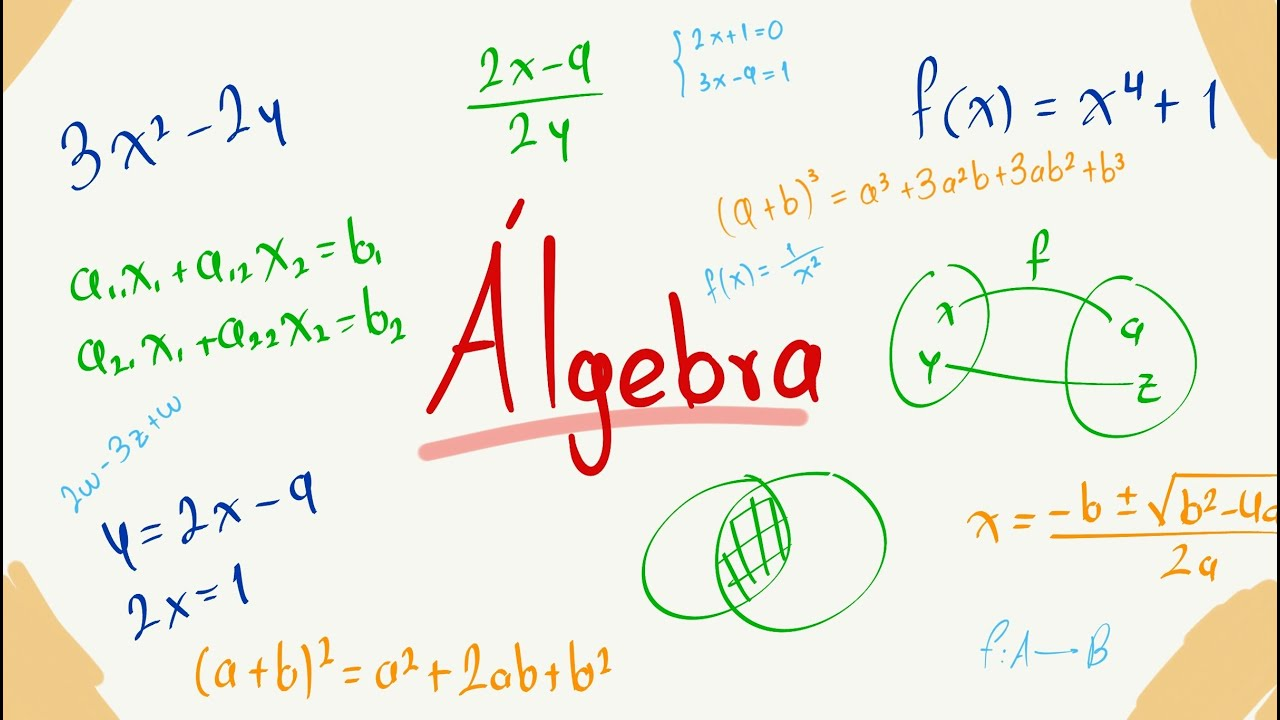 3x² - 2y
2x-9
2y
2x+1=0
3x-9=1
f(x) = x⁴ + 1
(a+b)³ = a³+3a²b+3ab²+b³
a₁₁x₁ + a₁₂x₂ = b₁
a₂₁x₁ + a₂₂x₂ = b₂
f(x) = 1/x²
Álgebra
f
x
a
y
z
2w-3z+w
y=2x-9
2x=1
x = -b ± √b²-4a
2a
(a+b)² = a² + 2ab + b²
f:A→B